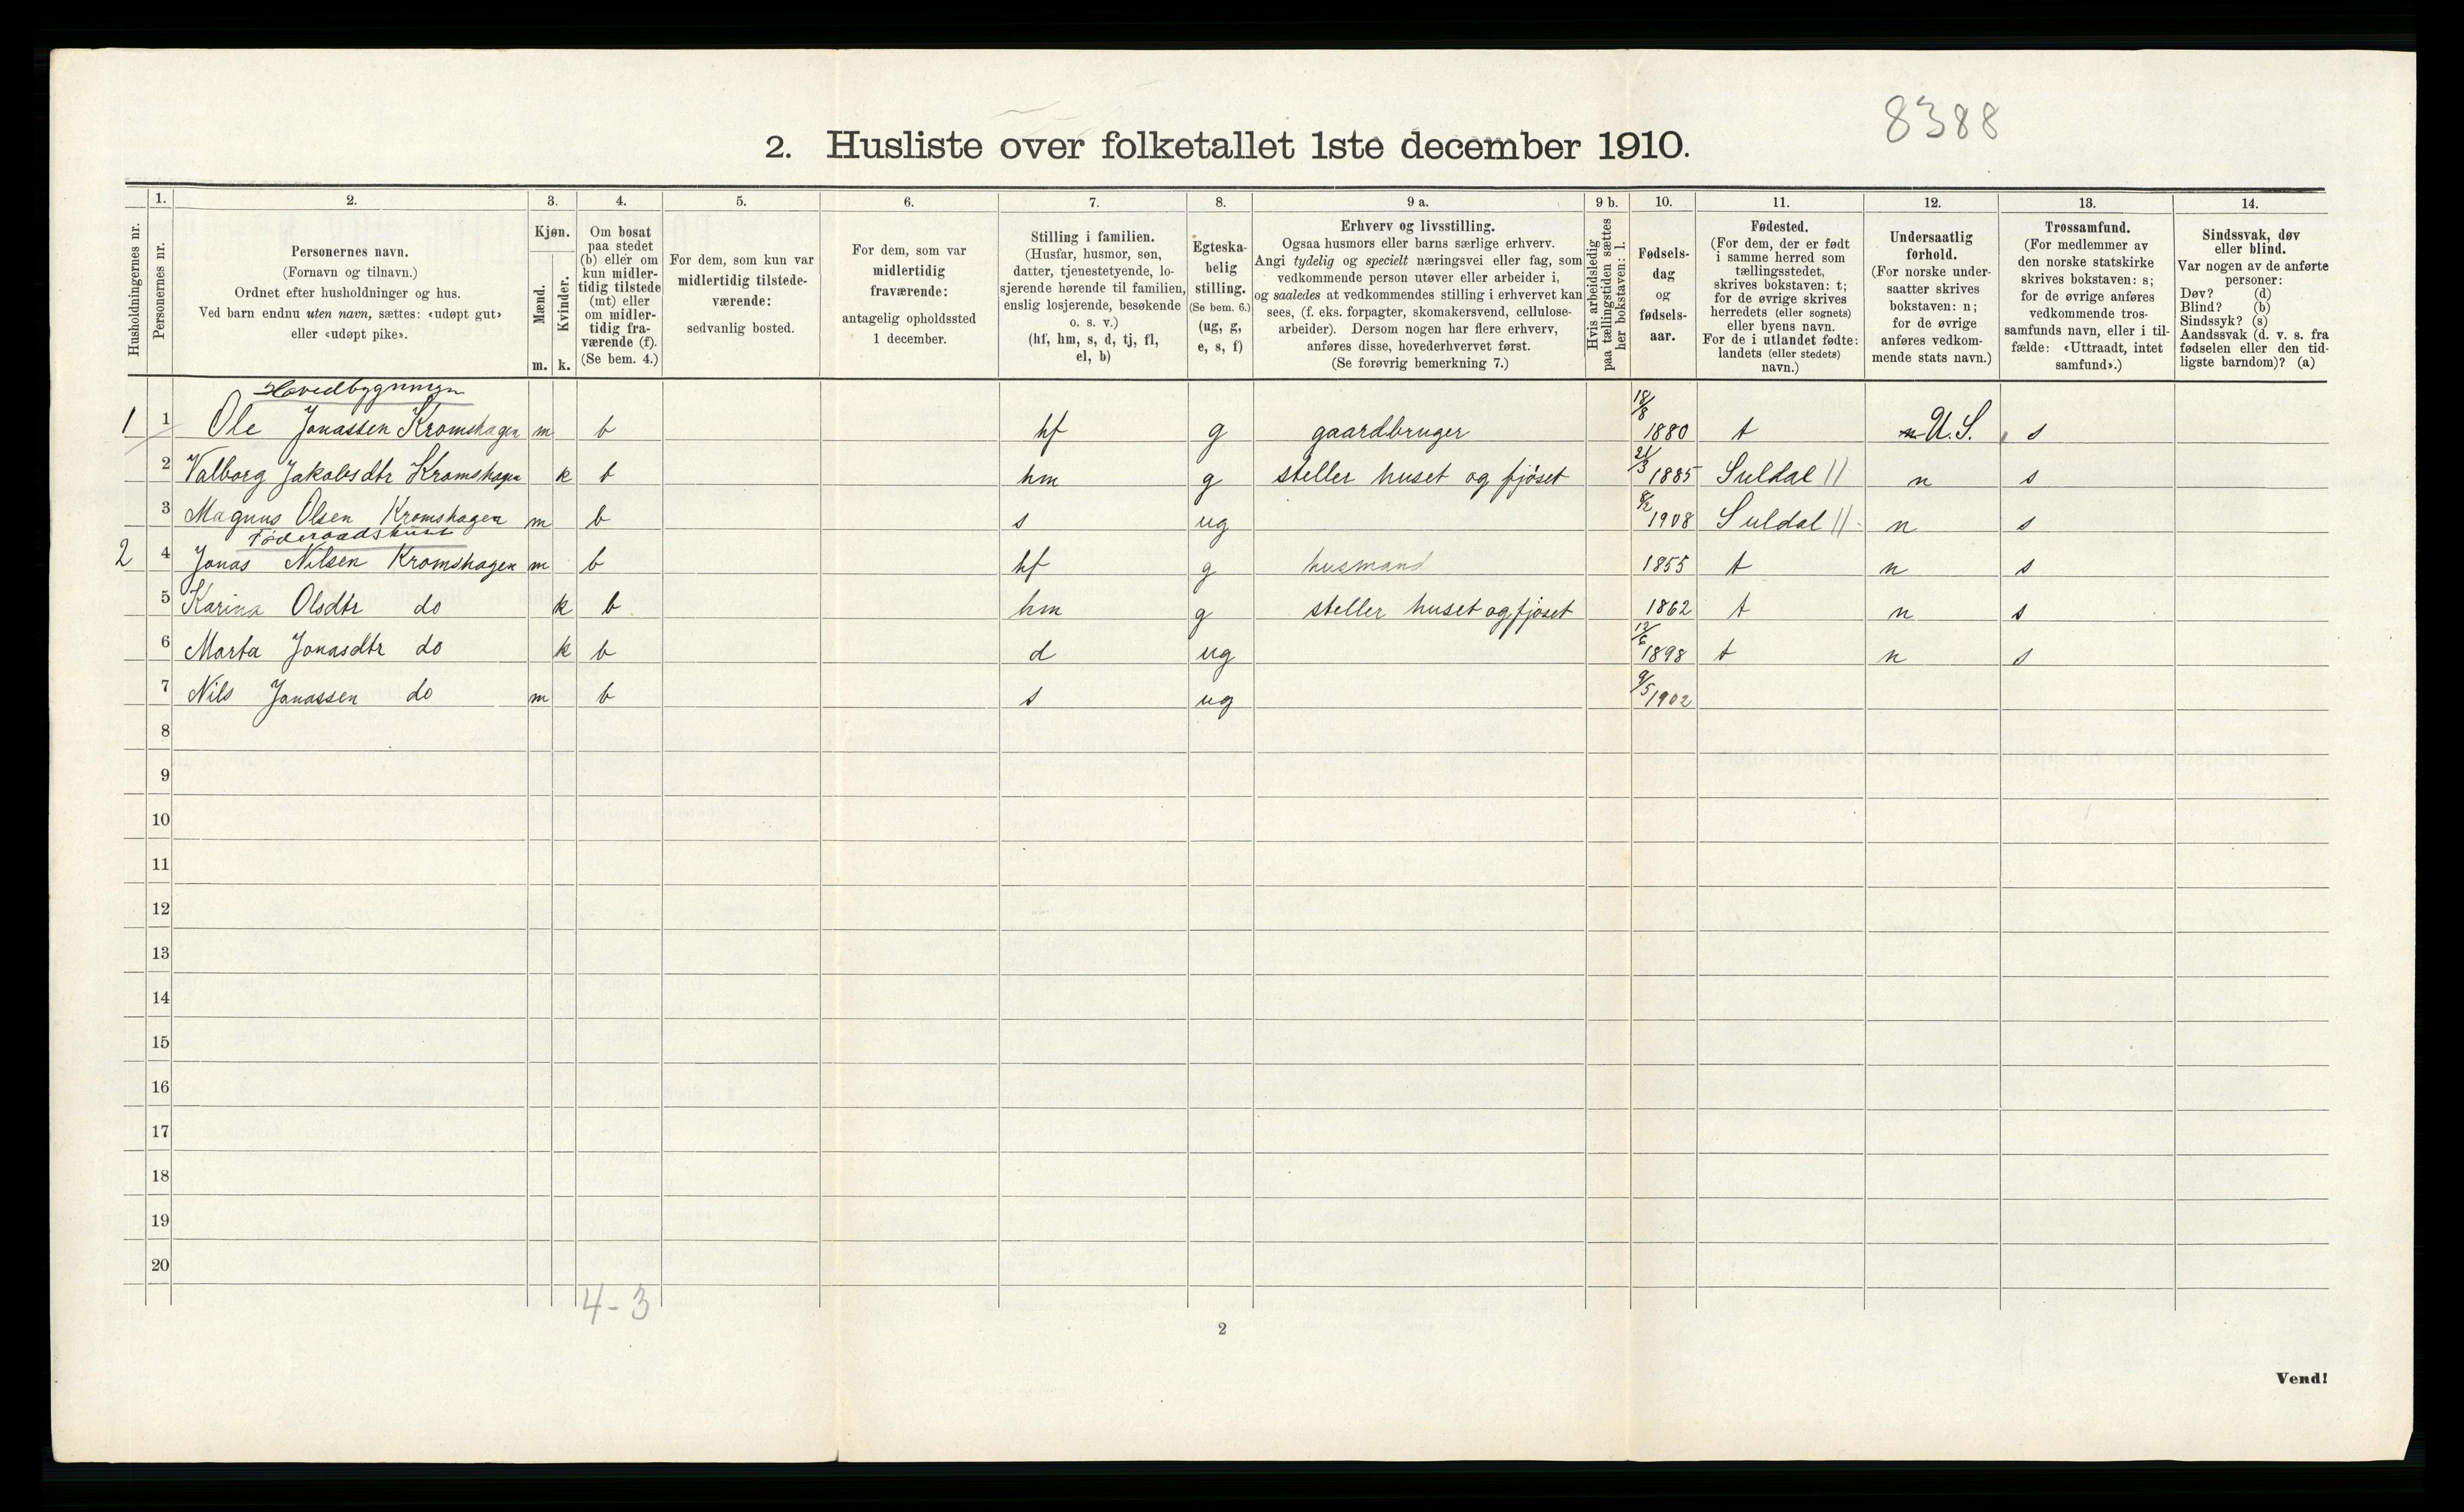 8388
2. Husliste over folketallet 1ste december 1910.
Husholdningernes nr.
1.
Personernes nr.
2.
Personernes navn.
(Fornavn og tilnavn.)
Ordnet efter husholdninger og hus.
Ved barn endnu uten navn, sættes: «udøpt gut»
eller «udøpt pike».
3.
Kjøn.
Mænd.
Kvinder.
m. k.
4.
Om bosat
paa stedet
(b) eller om
kun midler-
tidig tilstede
(mt) eller
om midler-
tidig fra-
værende (f).
(Se bem. 4.)
5.
For dem, som kun var
midlertidig tilstede-
værende:
sedvanlig bosted.
6.
For dem, som var
midlertidig
fraværende:
antagelig opholdssted
1 december.
7.
Stilling i familien.
(Husfar, husmor, søn,
datter, tjenestetyende, lo-
sjerende hørende til familien,
enslig losjerende, besøkende
o. s. v.)
(hf, hm, s, d, tj, fl,
el, b)
8.
Egteska-
belig
stilling.
(Se bem. 6.)
(ug, g,
e, s, f)
9 a.
Erhverv og livsstilling.
Ogsaa husmors eller barns særlige erhverv.
Angi tydelig og specielt næringsvei eller fag, som
vedkommende person utøver eller arbeider i,
og saaledes at vedkommendes stilling i erhvervet kan
sees, (f. eks. forpagter, skomakersvend, cellulose-
arbeider). Dersom nogen har flere erhverv,
anføres disse, hovederhvervet først.
(Se forøvrig bemerkning 7.)
9 b.
Hvis arbeidsledig
paa tællingstiden sættes
her bokstaven: l.
10.
Fødsels-
dag
og
fødsels-
aar.
11.
Fødested.
(For dem, der er født
i samme herred som
tællingsstedet,
skrives bokstaven: t;
for de øvrige skrives
herredets (eller sognets)
eller byens navn.
For de i utlandet fødte:
landets (eller stedets)
navn.)
12.
Undersaatlig
forhold.
(For norske under-
saatter skrives
bokstaven: n;
for de øvrige
anføres vedkom-
mende stats navn.)
13.
Trossamfund.
(For medlemmer av
den norske statskirke
skrives bokstaven: s;
for de øvrige anføres
vedkommende tros-
samfunds navn, eller i til-
fælde: «Uttraadt, intet
samfund».)
14.
Sindssvak, døv
eller blind.
Var nogen av de anførte
personer:
Døv? (d)
Blind? (b)
Sindssyk? (s)
Aandssvak (d. v. s. fra
fødselen eller den tid-
ligste barndom)? (a)
Hovedbygningen
1 1 Ole Jonassen Kromshagen m b hf g gaardbruger 18/8 1880 t n U.S. s
2 Valborg Jakobsdtr Kromshagen k b hm g steller huset og fjøset 21/3 1885 Suldal // n s
3 Magnus Olsen Kromshagen m b s ug 8/2 1908 Suldal // n s
Føderaadshuset
2 4 Jonas Nilsen Kromshagen m b hf g husmand 1855 t n s
5 Karina Olsdtr do k b hm g steller huset og fjøset 1862 t n s
6 Marta Jonasdtr do k b d ug 12/6 1898 t n s
7 Nils Jonassen do m b s ug 9/5 1902
8
9
10
11
12
13
14
15
16
17
18
19
20
4-3
2
Vend!